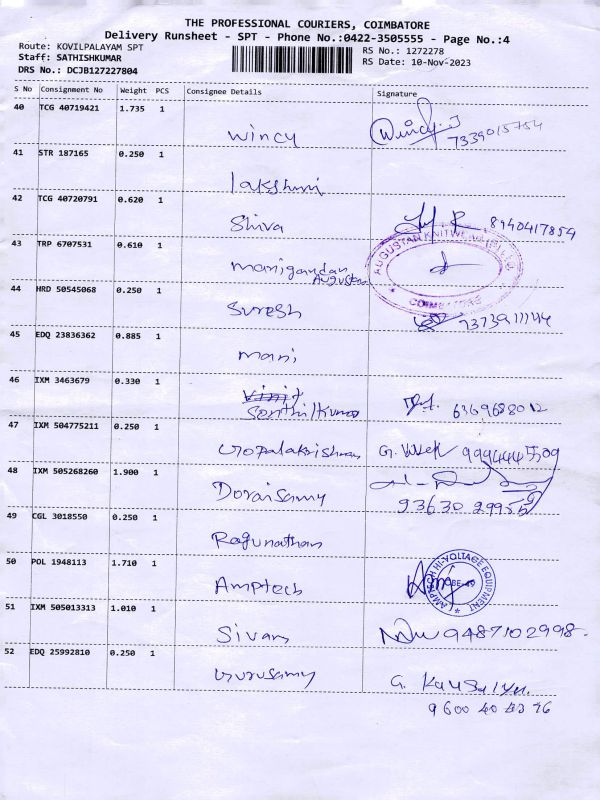 THE PROFESSIONAL COURIERS, COIMBATORE
Delivery Runsheet - SPT - Phone No.:0422-3505555 - Page No.:4
Route: KOVILPALAYAM SPT
RS No.: 1272278
Staff: SATHISHKUMAR
RS Date: 10-Nov-2023
DRS No.: DCJB127227804
S No Consignment No Weight PCS Consignee Details Signature
40 TCG 40719421 1.735 1
Wincy Wincy.J 7339015754
41 STR 187165 0.250 1
Lakshmi
42 TCG 40720791 0.620 1
Shiva 8940417854
43 TRP 6707531 0.610 1
Manigandan
Augustan
AUGUSTAN KNITWEAR
COIMBATORE
44 HRD 50545068 0.250 1
Suresh
45 EDQ 23836362 0.885 1
Mani
46 IXM 3463679 0.330 1
Vinit
Senthilkumar 6369688012
47 IXM 504775211 0.250 1
Gopalakrishnan G. Vivek
48 IXM 505268260 1.900 1
Doraisamy
49 CGL 3018550 0.250 1
Ragunathan
50 POL 1948113 1.710 1
Amptech
AMPTECH HI-VOLTAGE EQUIPMENT
51 IXM 505013313 1.010 1
Sivam 9487102998
52 EDQ 25992810 0.250 1
Gurusamy G. Kausalya.
9600404376